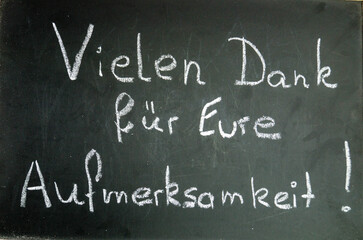 Vielen Dank
für Eure
Aufmerksamkeit!